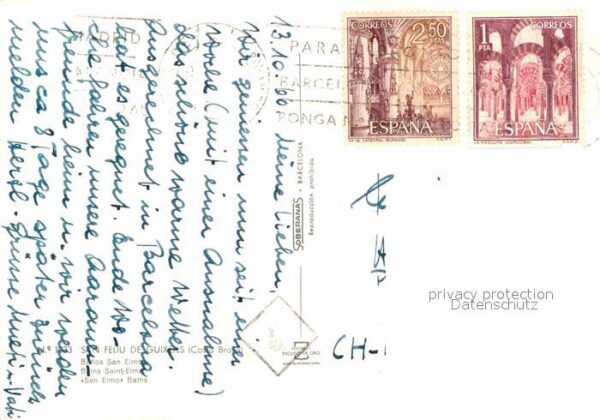 13.10.66 Meine Lieben,
Wir geniessen nun seit einer
Woche (mit einer Ausnahme)
das schöne warme Wetter.
Ausgerechnet in Barcelona
hat es geregnet. Ende Wo-
che fahren unsere Aarauer
Freunde heim u. wir werden
uns ca 8 Tage später zurück
melden Herzl. Grüsse Mutti u. Vati
MADRID
PARA
BARCEL
PONGA
CORREOS
2,50
PTAS
ESPAÑA
CORREOS
1
PTA
ESPAÑA
SOBERANAS - BARCELONA
Reproducción prohibida
privacy protection
Datenschutz
CH-
SAN FELIU DE GUIXOLS (Costa Brava)
Baños San Elmo
Bains Saint-Elme
«San Elmo» Baths
ESCUDO DE ORO